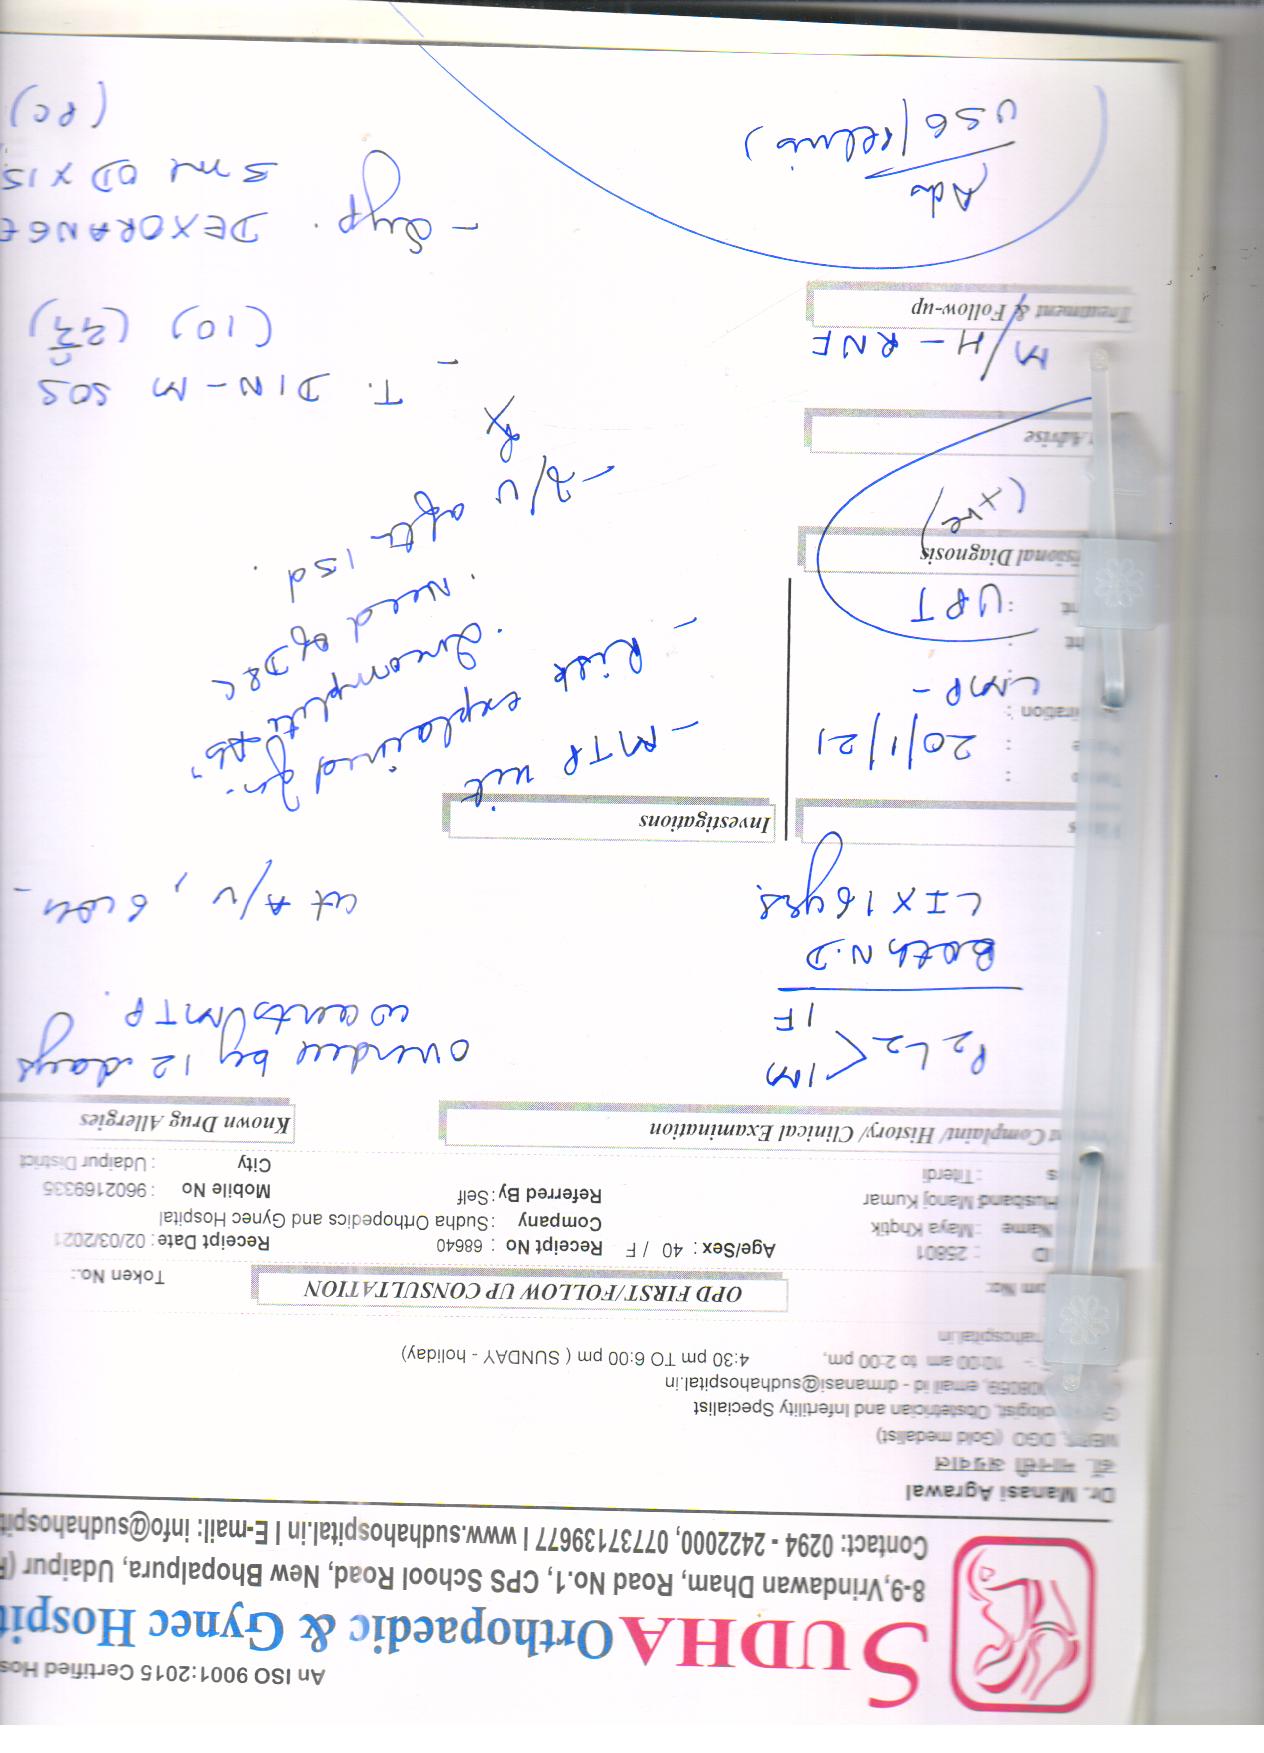 An ISO 9001:2015 Certified Hos
SUDHA Orthopaedic & Gynec Hospit
8-9,Vrindawan Dham, Road No.1, CPS School Road, New Bhopalpura, Udaipur (R
Contact: 0294 - 2422000, 07737139677 I www.sudhahospital.in I E-mail: info@sudhahospit
Dr. Manasi Agrawal
डॉ. मानसी अग्रवाल
MBBS, DGO (Gold medalist)
ologist, Obstetrician and Infertility Specialist
08059, email id - drmanasi@sudhahospital.in
- 10:00 am to 2:00 pm, 4:30 pm TO 6:00 pm ( SUNDAY - holiday)
hahospital.in
om No: OPD FIRST/FOLLOW UP CONSULTATION Token No.:
ID : 25801 Age/Sex : 40 / F Receipt No : 68640 Receipt Date : 02/03/2021
Name : Maya Khqtik Company : Sudha Orthopedics and Gynec Hospital
Husband Manoj Kumar Referred By : Self Mobile No : 9602169335
s : Titerdi City : Udaipur District
t Complaint/ History/ Clinical Examination Known Drug Allergies
P2L2 < 1M
1F
Both N.D
LI X 16 yrs.
overdue by 12 days
wants MTP.
ut A/V,
Investigations
20/1/21
LMP -
UPT
(+ve)
sional Diagnosis
Advise
M/H - RNF
Treatment & Follow-up
Adv
USG (Pelvis)
- MTP kit
- Risk explained for:
. Incomplete Ab"
. Need of D&C
- R/V after 15d.
Rx
- T. DIN-M SOS
(10)
- Syp. DEXORANGE
5 ml OD X 15
(PC)